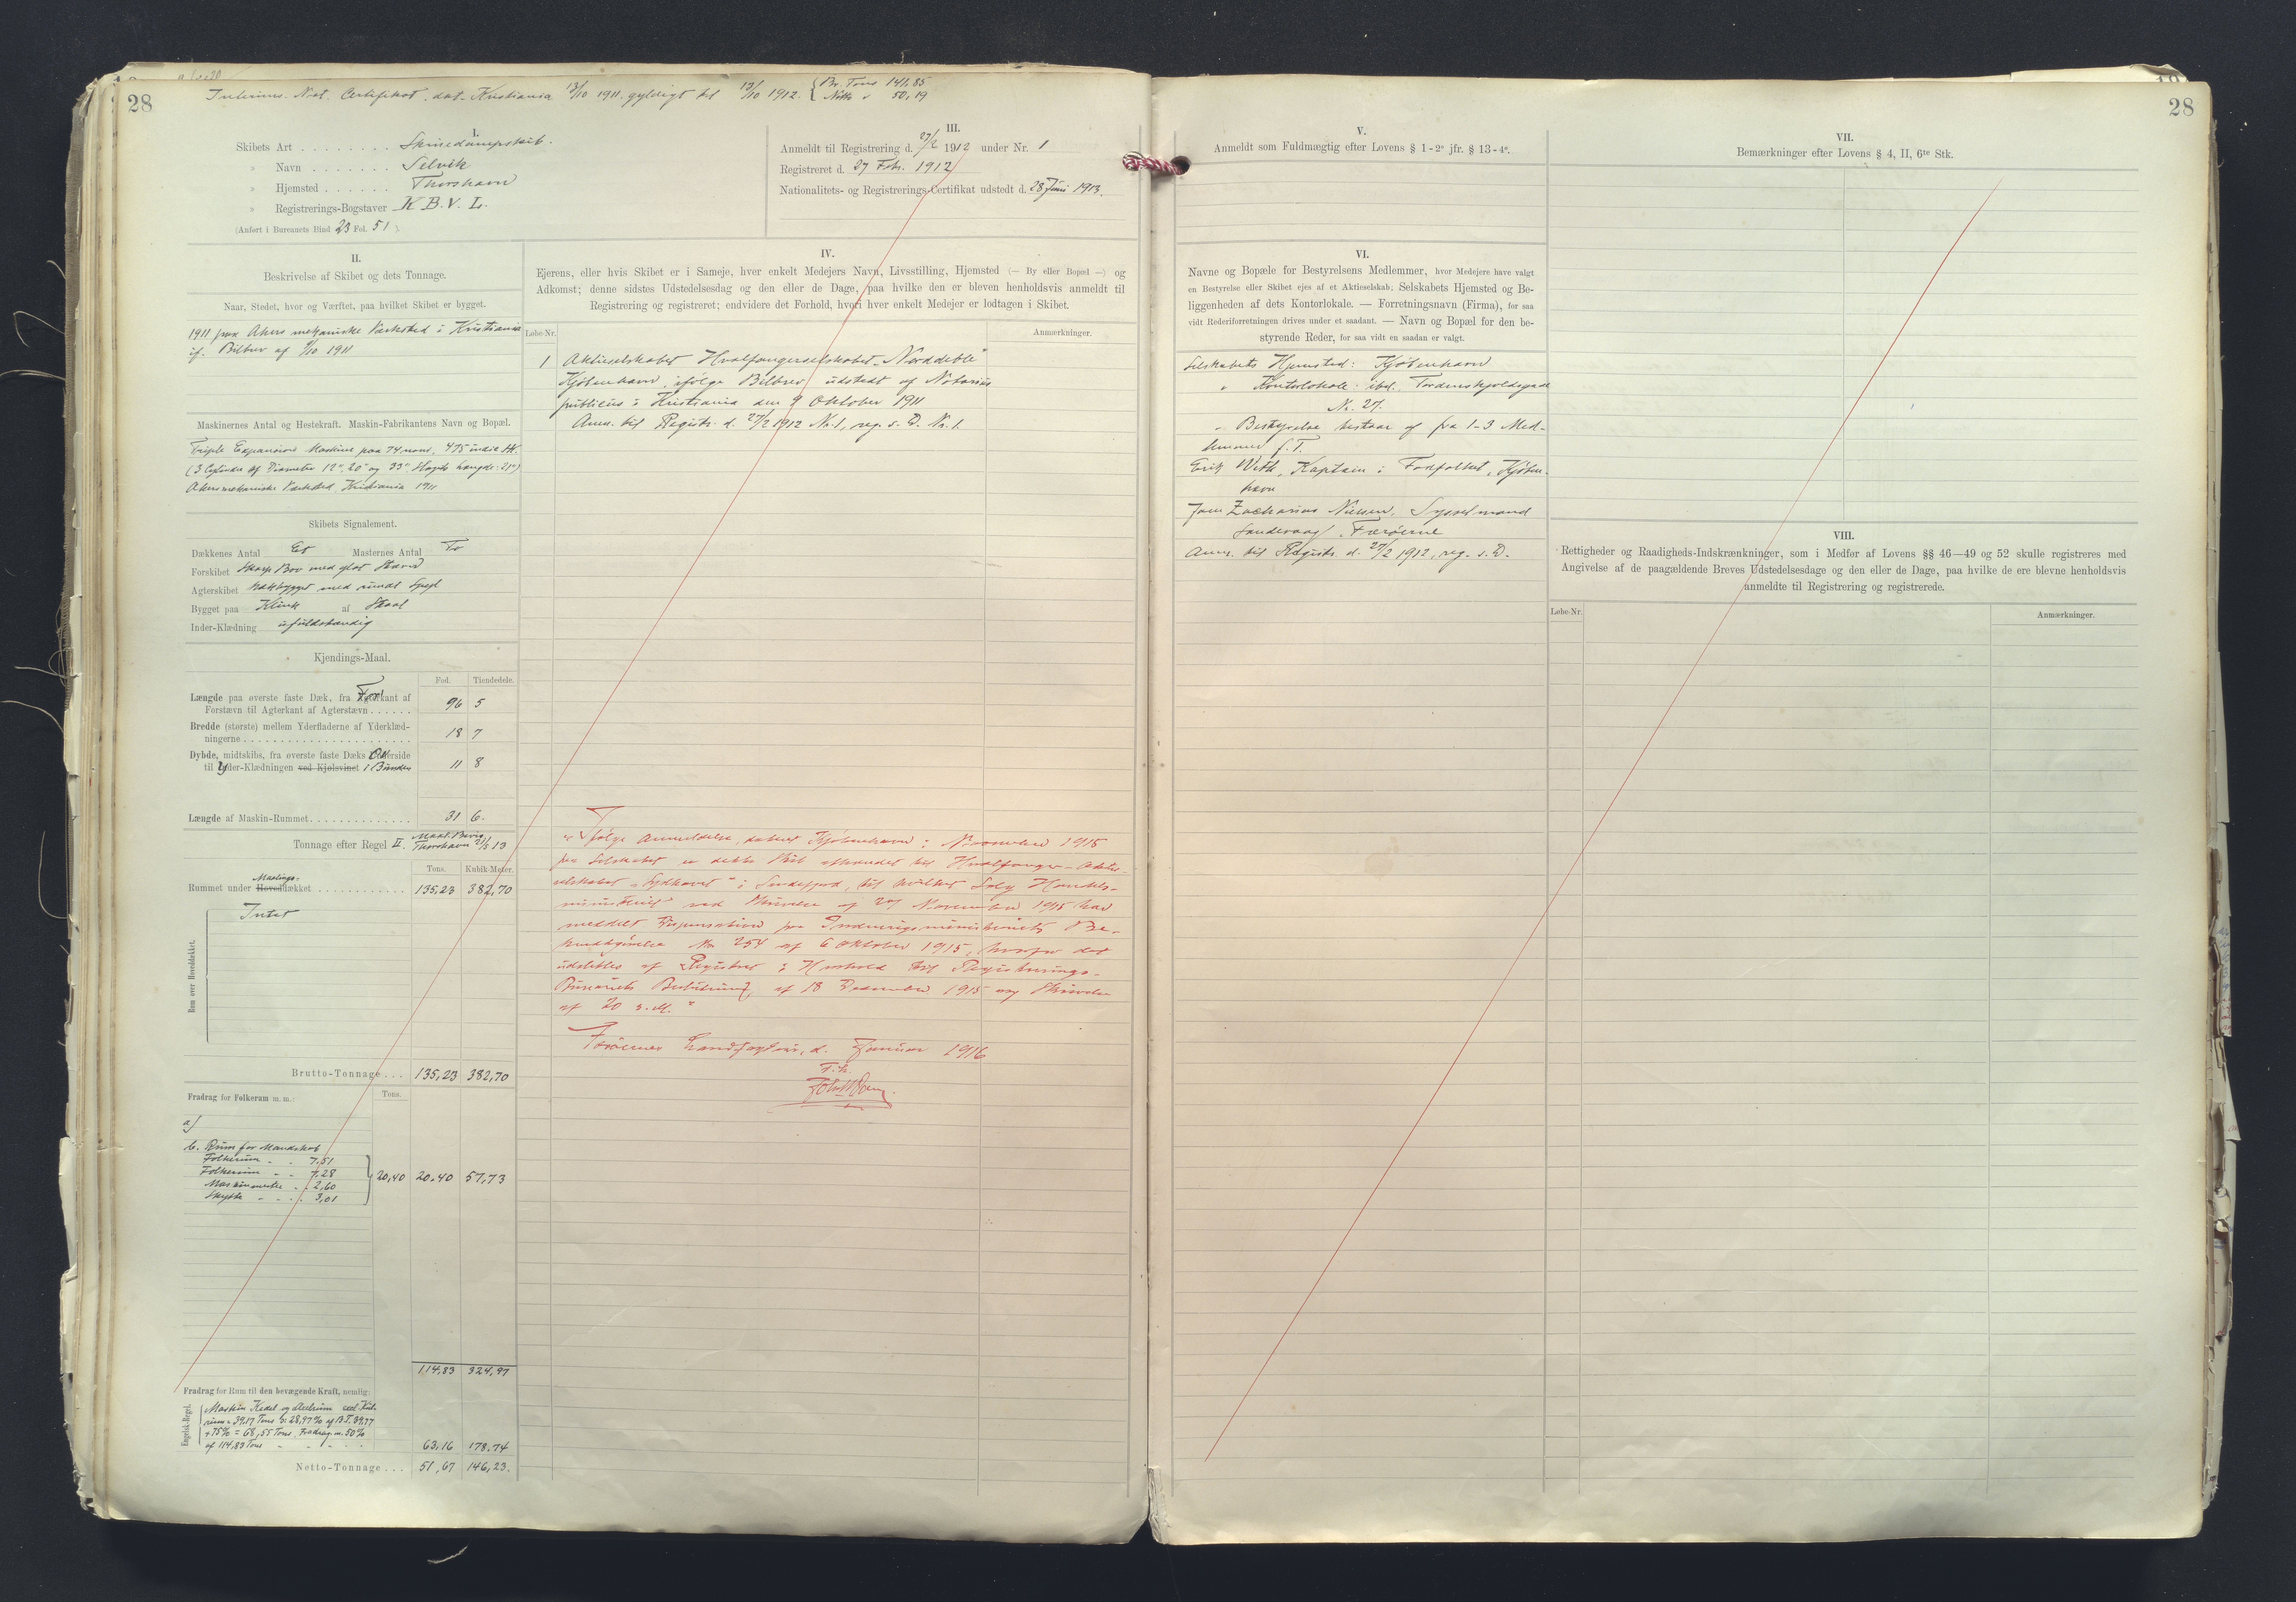 28
Interims. Nat. Certifikat. dat. Kristiania 13/10 1911, gyldigt til 13/10 1912. { Br. Tons 141,85
Netto " 50,19
I.
Skibets Art . . . . . . . . Skruedampskib.
" Navn . . . . . . . Selvik
" Hjemsted . . . . . . Thorshavn
" Registrerings-Bogstaver K. B. V. L.
(Anført i Bureauets Bind 23 Fol. 51 ).
III.
Anmeldt til Registrering d. 27/2 1912 under Nr. 1
Registreret d. 27 Febr. 1912
Nationalitets- og Registrerings-Certifikat udstedt d. 28 Juni 1913.
II.
Beskrivelse af Skibet og dets Tonnage.
Naar, Stedet, hvor og Værftet, paa hvilket Skibet er bygget.
1911 paa Akers mekaniske Værksted i Kristiania
if. Bilbrev af 9/10 1911
Maskinernes Antal og Hestekraft. Maskin-Fabrikantens Navn og Bopæl.
Triple Expansions Maskine paa 74 nom., 475 indic. HK.
(3 Cylindre af Diameter 12", 20" og 33". Slagets Længde: 21")
Akers mekaniske Værksted, Kristiania 1911
Skibets Signalement.
Dækkenes Antal Et Masternes Antal To
Forskibet Skarp Bov med glat Stævn
Agterskibet med rundt Spejl
Bygget paa Klink af Staal
Inder-Klædning ufuldstændig
Kjendings-Maal.
Fod. Tiendedele.
Længde paa øverste faste Dæk, fra Forkant af
Forstævn til Agterkant af Agterstævn . . . . . . 96 5
Bredde (største) mellem Yderfladerne af Yderklæd-
ningerne . . . . . . . . . . . . . . . . . . . . . . 18 7
Dybde, midtskibs, fra øverste faste Dæks Overside
til Yder-Klædningen ved Kjølsvinet i Bunden 11 8
Længde af Maskin-Rummet . . . . . . . . . . . . . 31 6.
Tonnage efter Regel II. Maal. Bevis
Thorshavn 21/5 13
Tons. Kubik-Meter.
Maalings-
Rummet under Hoveddækket . . . . . . . . . . . . 135,23 382,70
Rum over Hoveddækket.
Intet
Brutto-Tonnage . . . 135,23 382,70
Fradrag for Folkerum m. m.: Tons.
a)
b. Rum for Mandskab
Folkerum - - 7,51
Folkerum - - 7,28
Maskinmestre - - 2,60
Skytte - - - 3,01
20,40 20.40 57,73
114,83 324,97
Fradrag for Rum til den bevægende Kraft, nemlig:
Engelsk-Regel.
Maskin Kedel og
rum = 39,17 Tons o: 28,97% af B.T. 39,17
+ 75% = 68,55 Tons. Fradrag m. 50%
af 114,83 Tons - - - - 63,16 178.74
Netto-Tonnage . . . 51,67 146,23.
IV.
Ejerens, eller hvis Skibet er i Sameje, hver enkelt Medejers Navn, Livsstilling, Hjemsted (— By eller Bopæl —) og
Adkomst; denne sidstes Udstedelsesdag og den eller de Dage, paa hvilke den er bleven henholdsvis anmeldt til
Registrering og registreret; endvidere det Forhold, hvori hver enkelt Medejer er lodtagen i Skibet.
Løbe-Nr. Anmærkninger.
1 Aktieselskabet Hvalfangerselskabet "Norddeble"
Kjøbenhavn, ifølge Bilbrev udstedt af Notarius
publicus i Kristiania den 9 Oktober 1911
Anm. til Registr. d. 27/2 1912 Nr. 1, reg. s. D. Nr. 1.
Ifølge Anmeldelse, dateret Kjøbenhavn i November 1915
fra Selskabet er dette Skib afhændet til Hvalfanger-Aktie-
selskabet "Sydhavet" i Sandefjord, til hvilket Salg Handels-
ministeriet ved Skrivelse af 27 November 1915 har
meddelt Dispensation fra Indenrigsministeriets Be-
kendtgørelse No 254 af 6 Oktober 1915, hvorfor det
udslettes af Registret i Henhold til Registrerings-
Bureauets Bestemmelse af 18 December 1915 og Skrivelse
af 20 s. M."
Færøernes Landfogderi, d. Januar 1916
F. h.
V.
Anmeldt som Fuldmægtig efter Lovens § 1-2° jfr. § 13-4°.
VI.
Navne og Bopæle for Bestyrelsens Medlemmer, hver Medejere have valgt
en Bestyrelse eller Skibet ejes af et Aktieselskab; Selskabets Hjemsted og Be-
liggenheden af dets Kontorlokale. — Forretningsnavn (Firma), for saa
vidt Rederiforretningen drives under et saadant. — Navn og Bopæl for den be-
styrende Reder, for saa vidt en saadan er valgt.
Selskabets Hjemsted: Kjøbenhavn
" Kontorlokale ibd. Tordenskjoldsgade
Nr. 27.
" Bestyrelse bestaar af fra 1-3 Med-
lemmer f. T.
Erik With, Kaptain i Fodfolket, Kjøben-
havn
Jens Zacharias Nielsen, Sysselmand
Sandevaag, Færøerne
Anm. til Registr. d. 27/2 1912, reg. s. D.
28
VII.
Bemærkninger efter Lovens § 4, II, 6te Stk.
VIII.
Rettigheder og Raadigheds-Indskrænkninger, som i Medfør af Lovens §§ 46—49 og 52 skulle registreres med
Angivelse af de paagældende Breves Udstedelsesdage og den eller de Dage, paa hvilke de ere blevne henholdsvis
anmeldte til Registrering og registrerede.
Løbe-Nr. Anmærkninger.